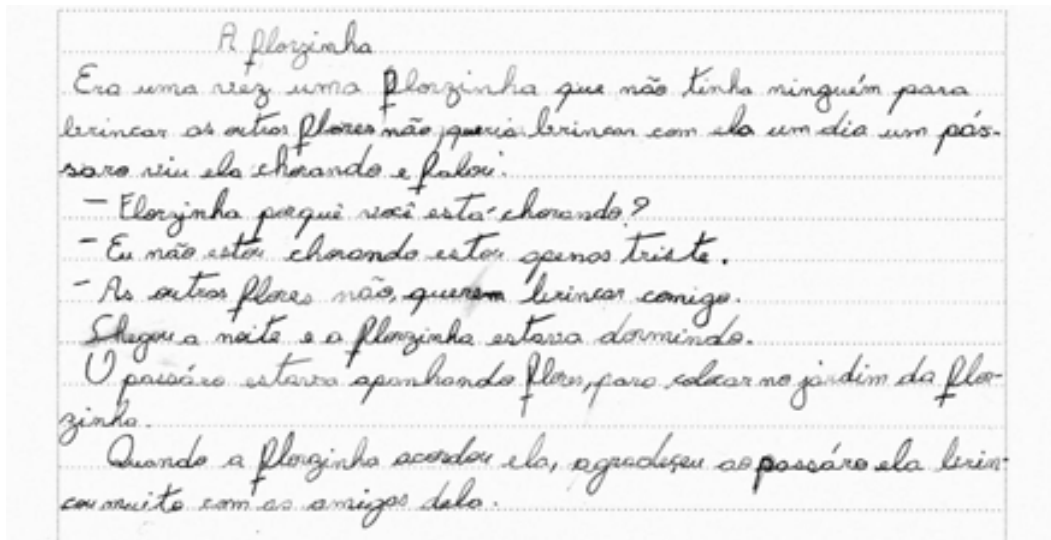 A florzinha
Era uma vez uma florzinha que não tinha ninguém para
brincar as outras flores não queria brincar com ela um dia um pás-
saro viu ela chorando e falou:
– Florzinha porquê você está chorando?
– Eu não estou chorando estou apenas triste.
– As outras flores não, querem brincar comigo.
Chegou a noite e a florzinha estava dormindo.
O passáro estava apanhando flores, para colocar no jardim da flor-
zinha.
Quando a florzinha acordou ela, agradeçeu ao passáro ela brin-
cou muito com as amigas dela.